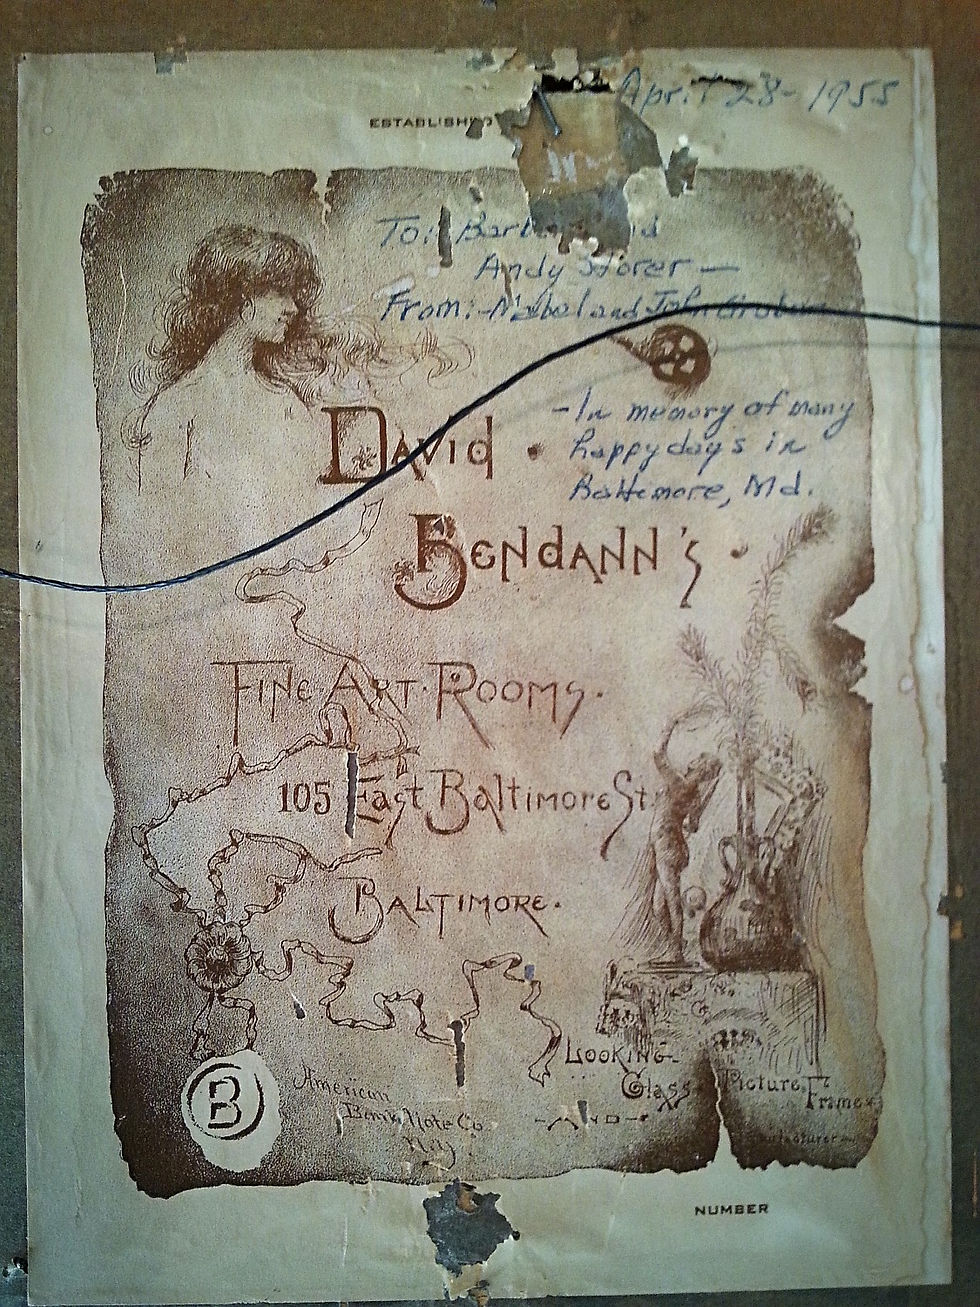 April 28 - 1955
ESTABLISHED
To: and
Andy Storer —
From: Mabel and John
- In memory of many
happy days in
Baltimore, Md.
DAVID
BENDANN'S
FINE ART ROOMS.
105 East Baltimore St.
BALTIMORE.
LOOKING
Glass Picture Frame
- AND -
B
American
Bank Note Co.
N.Y.
NUMBER